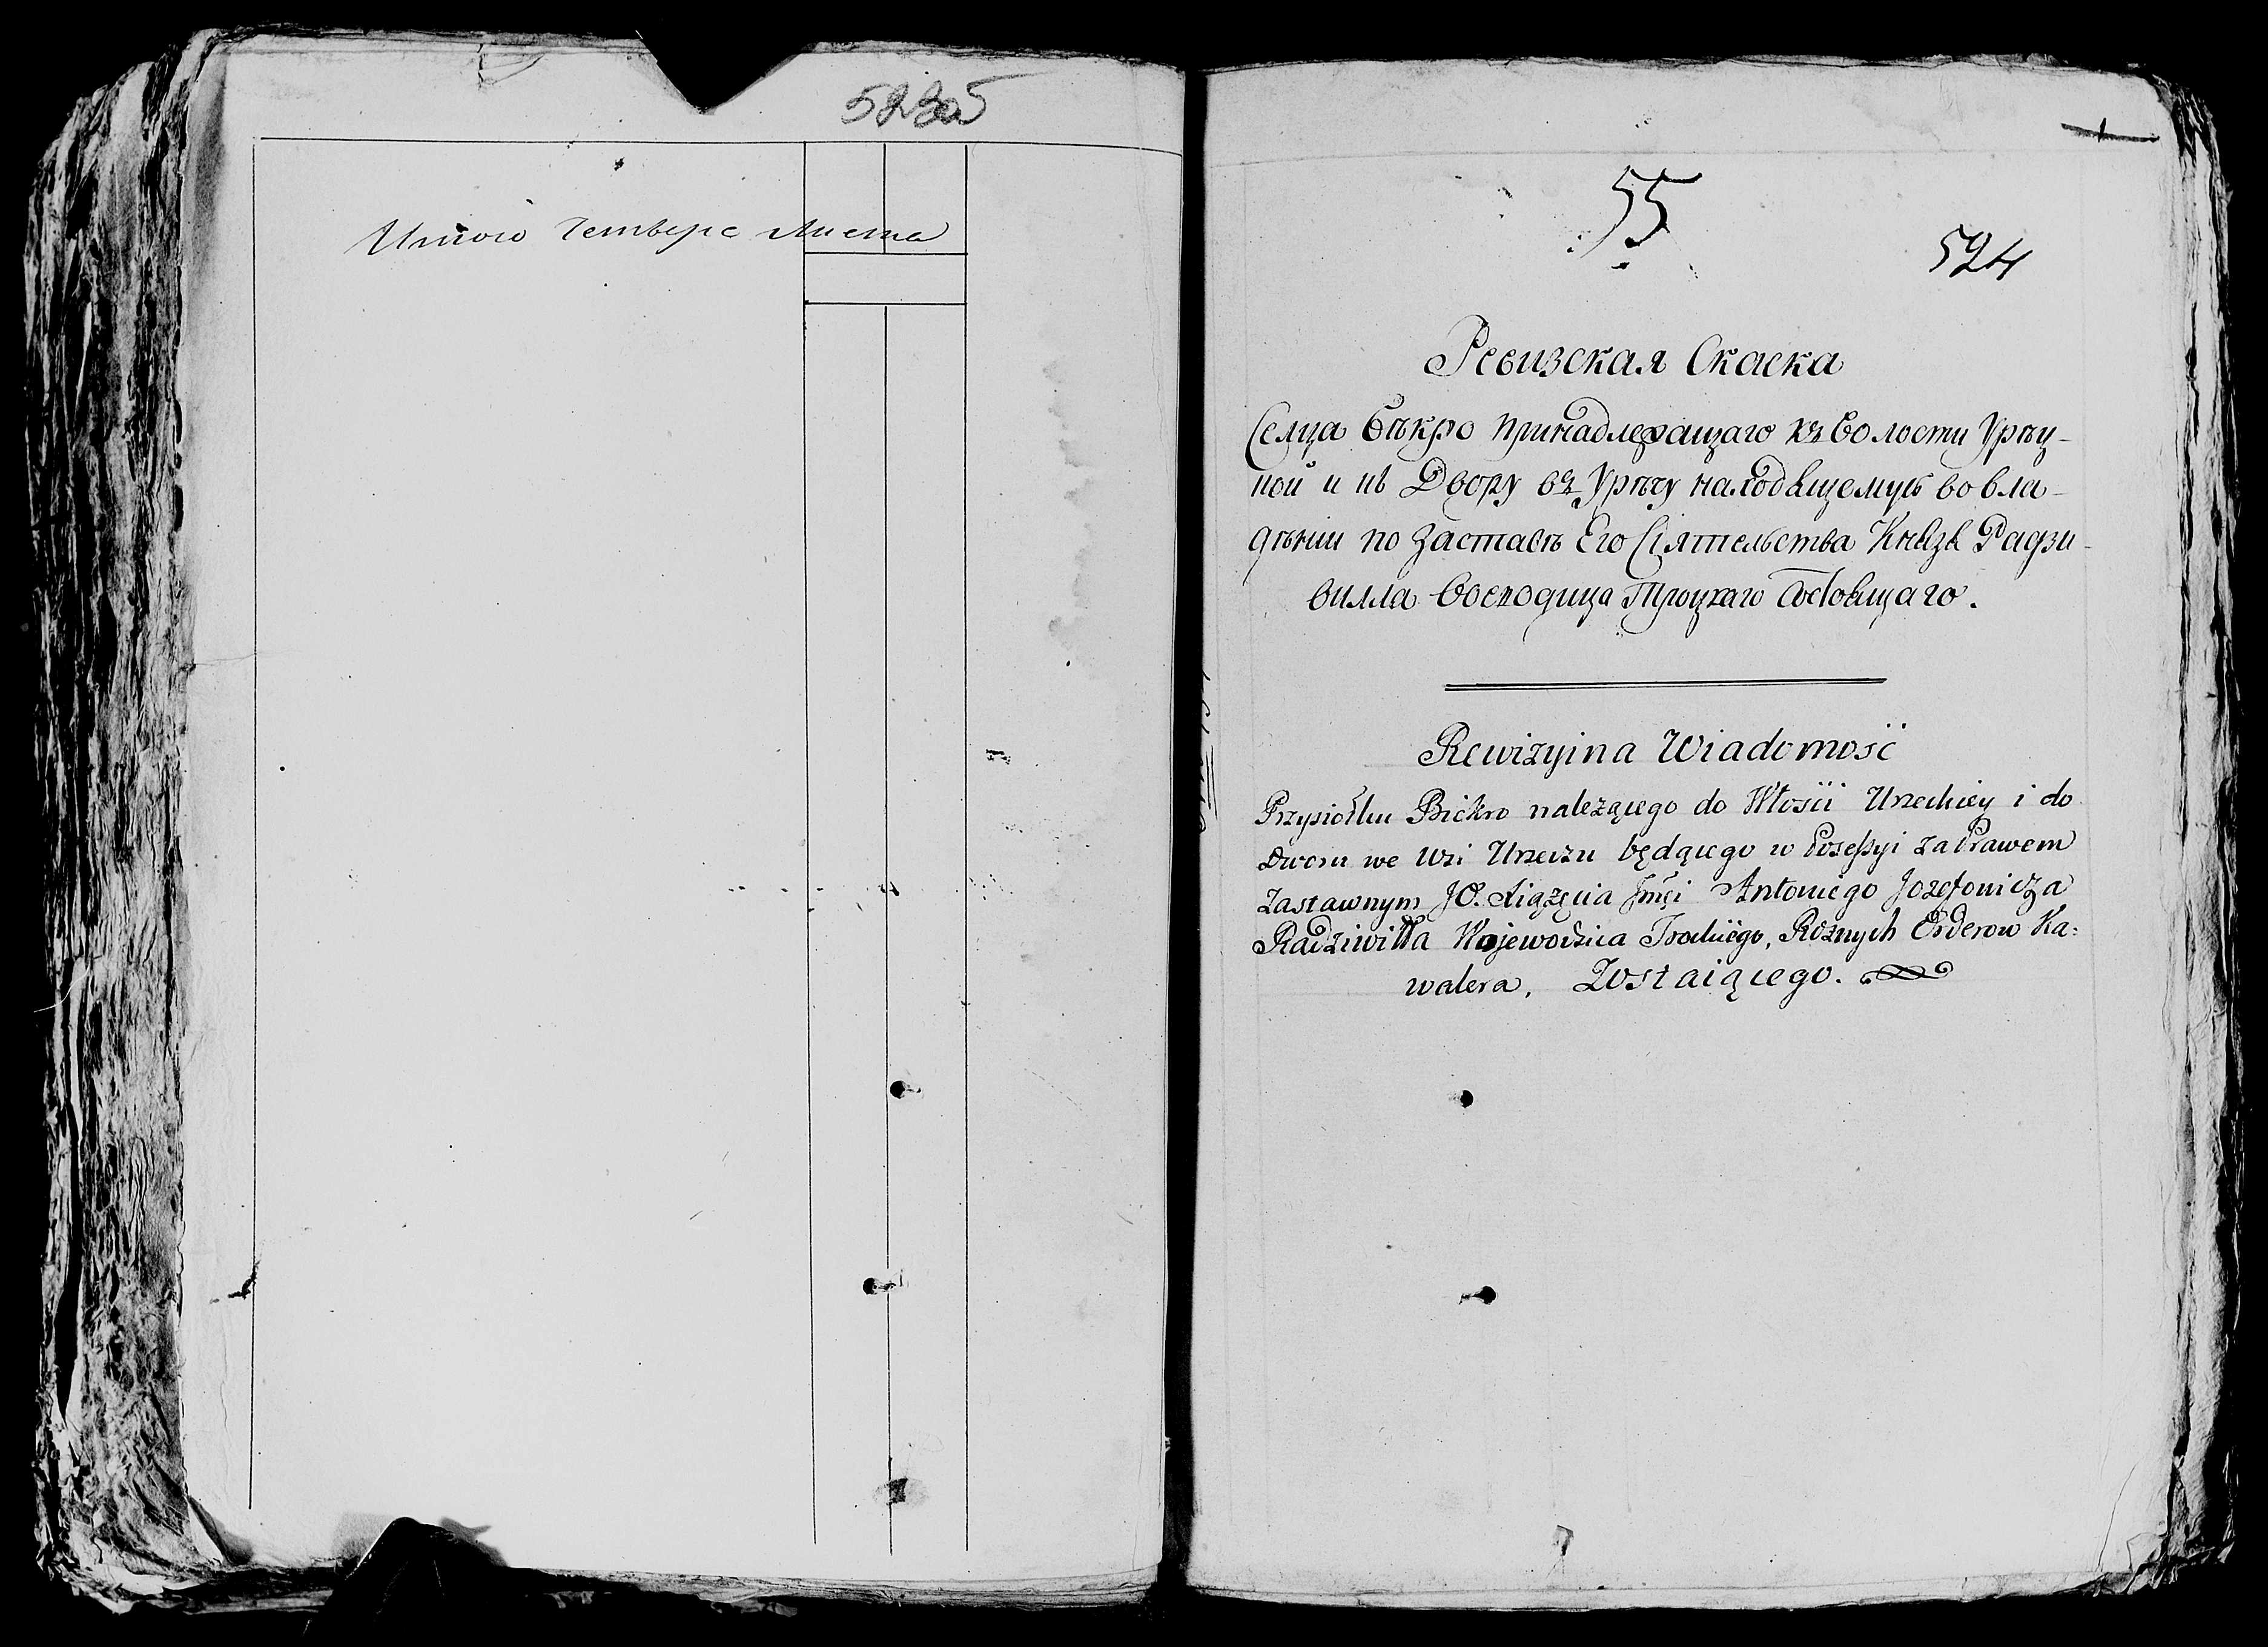 Итого Четверо Листа
55
524
Ревизская Скаска
Селца Бѣкро принадлежащаго къ Волости Урѣц-
кой и къ Двору въ Урѣчу находящемуся во вла-
дѣнии по Заставѣ Его Сіятельства Князя Радзи-
вилла Воеводица Троцкаго Состоящаго.
Rewizyina Wiadomość
Przysiołku Bickro należącego do Włości Urzeckiey i do
Dworu we Wsi Urzeczu będącego w Possessyi za Prawem
Zastawnym JO. Xiążęcia Jmći Antoniego Jozefowicza
Radziwiłła Wojewodzica Trockiego, Rożnych Orderow Ka:
walera, Zostaiącego.